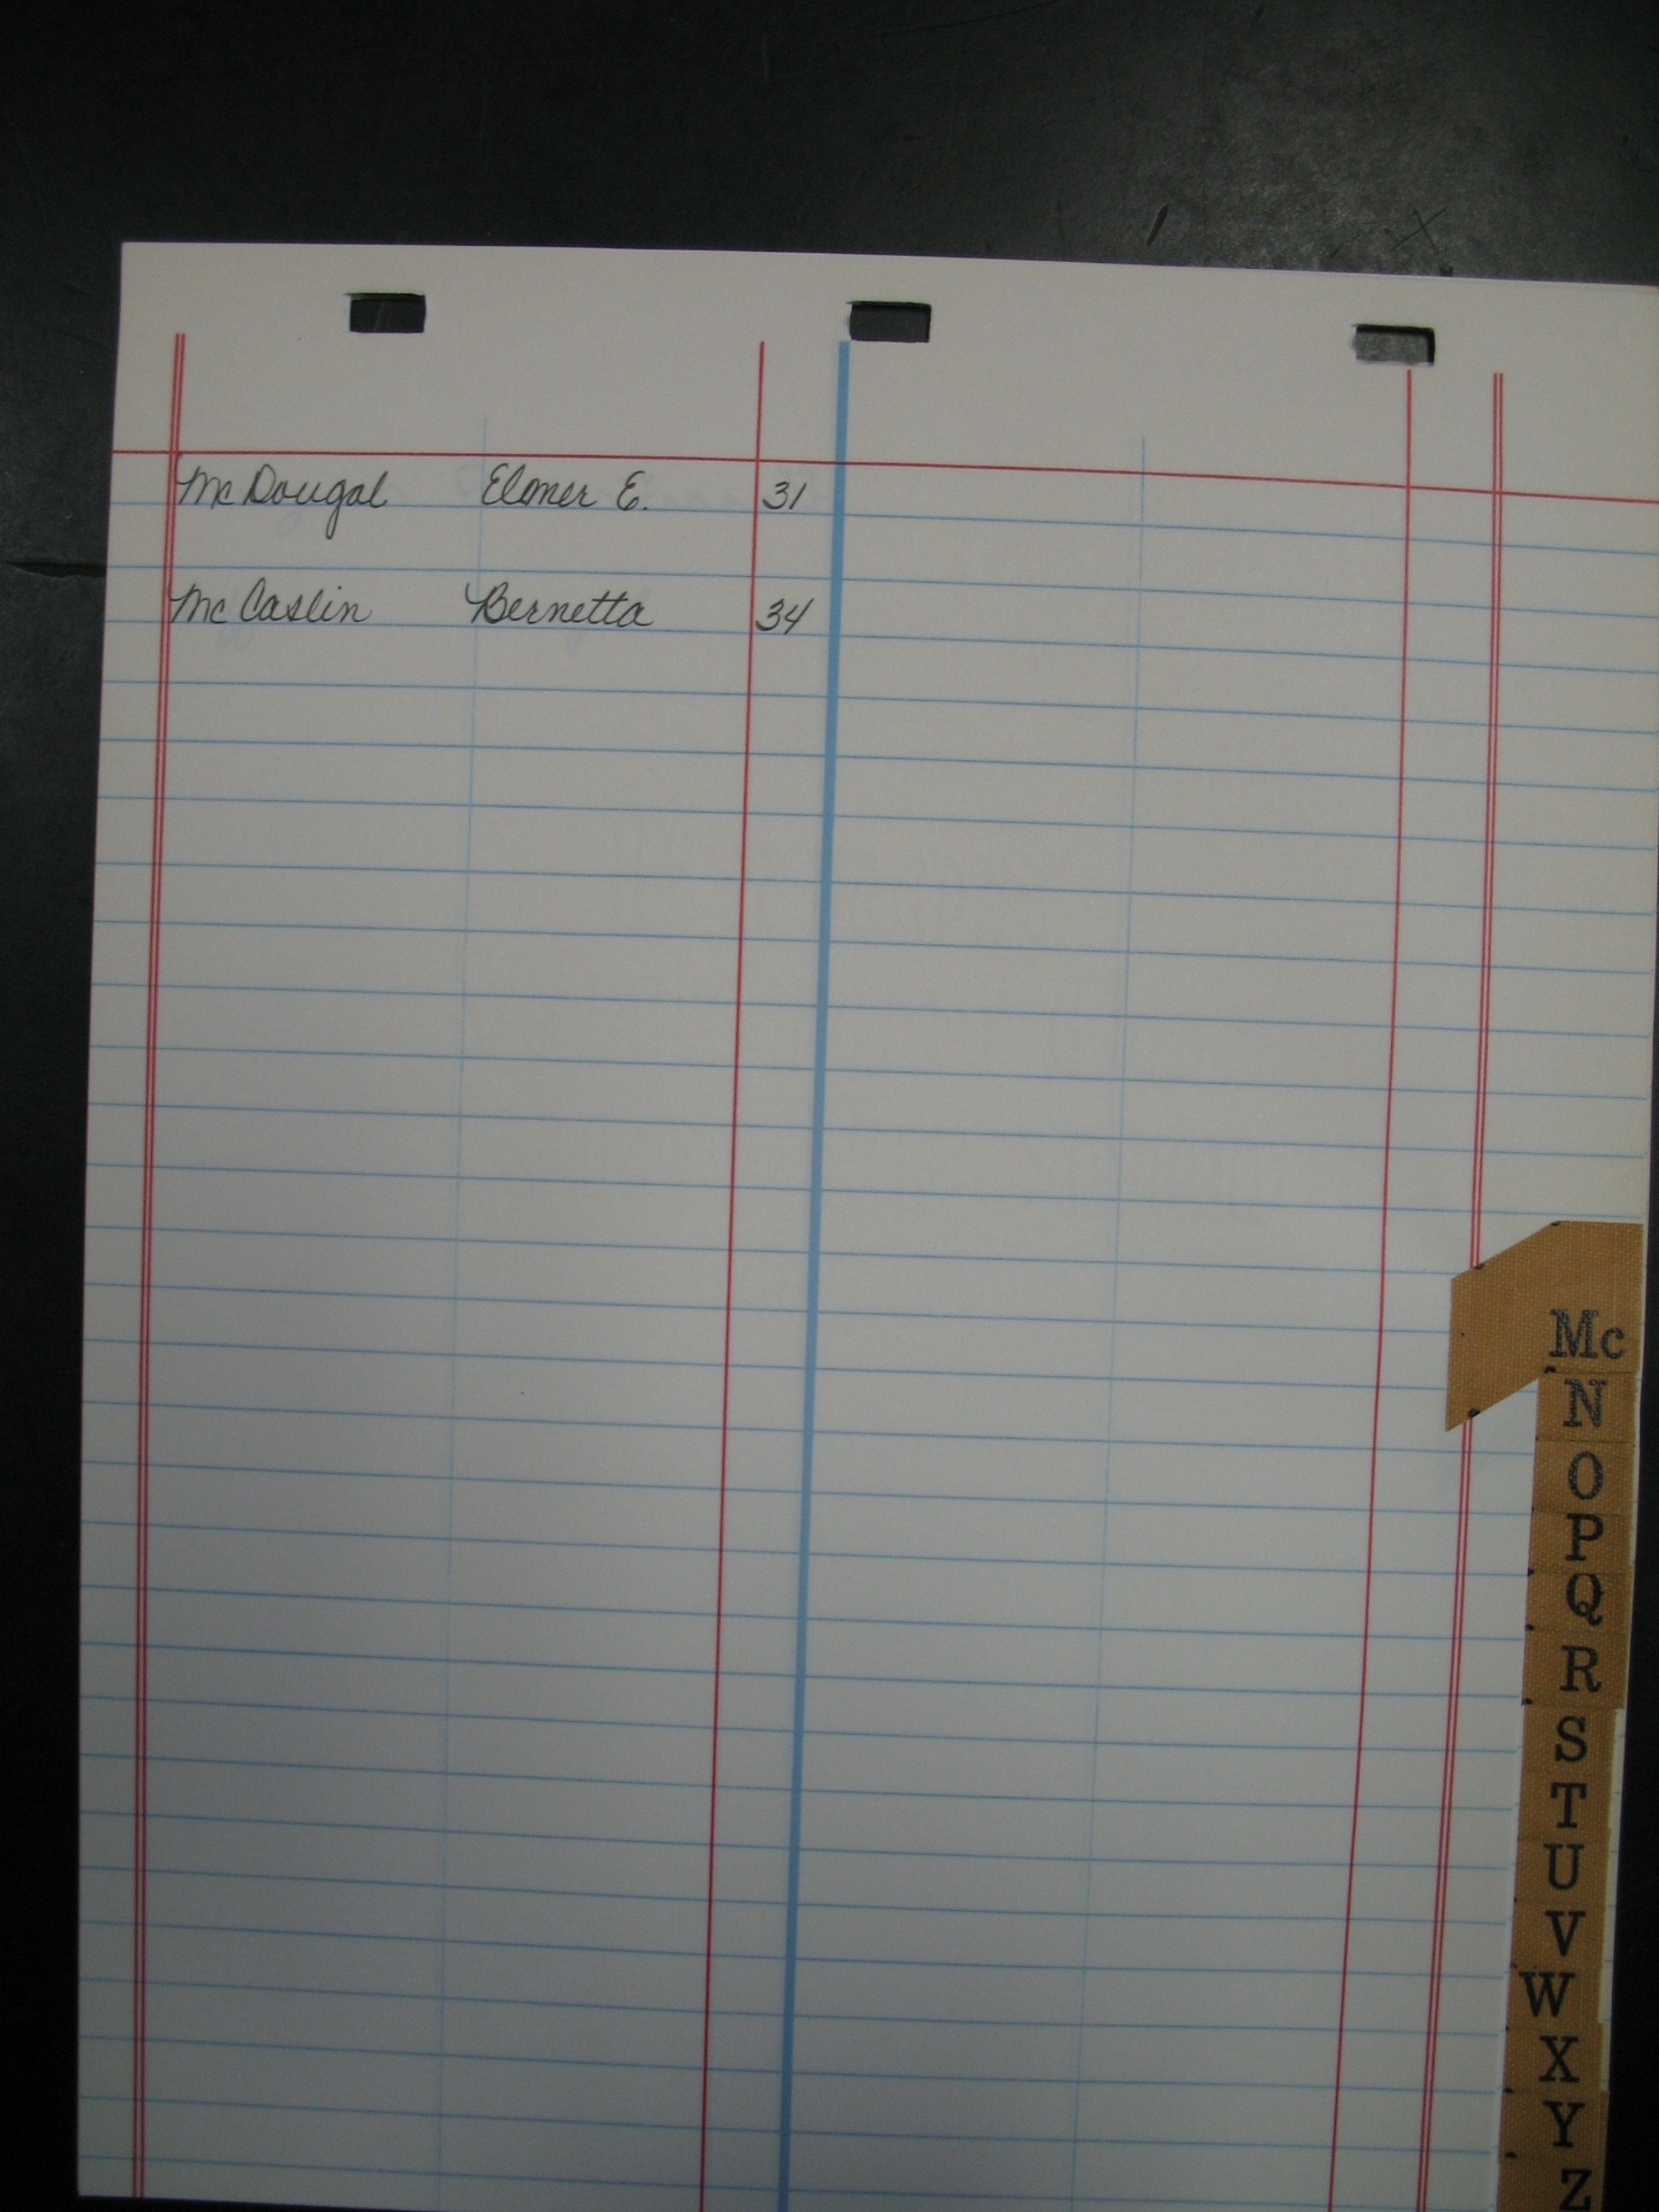 McDougal Elmer E. 31
McCaslin Bernetta 34
Mc
N
O
P
Q
R
S
T
U
V
W
X
Y
Z